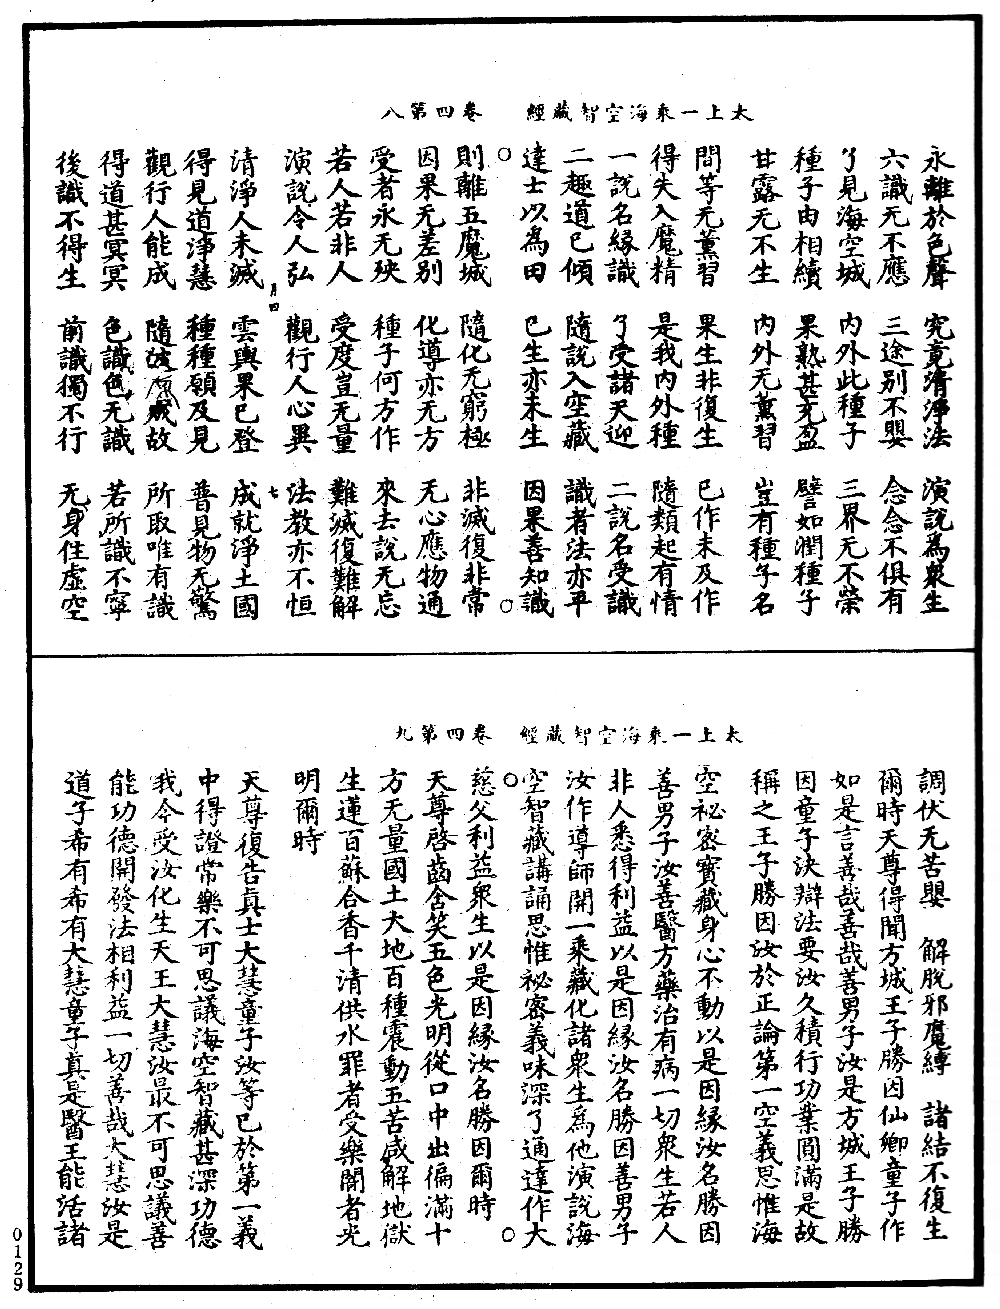 太上一乘海空智藏經　卷四第八
永離於色聲　究竟清淨法　演說為衆生
六識无不應　三途别不嬰　念念不俱有
了見海空城　内外此種子　三界无不榮
種子由相續　果熟甚充盈　譬如潤種子
甘露无不生　内外无薰習　豈有種子名
間等无薰習　果生非復生　已作未及作
得失入魔精　是我内外種　隨類起有情
一說名緣識　了受諸天迎　二說名受識
二趣道已傾　隨說入空藏　識者法亦平
達士以為田　已生亦未生　因果善知識
則離五魔城　隨化无窮極　非滅復非常
因果无差别　化導亦无方　无心應物通
受者永无殃　種子何方作　來去說无忘
若人若非人　受度豈无量　難滅復難解
演說令人弘　觀行人心異　法教亦不恒
月四　七
清淨人未滅　雲輿果已登　成就淨土國
得見道淨慧　種種願及見　普見物无驚
觀行人能成　隨故　所取唯有識
得道甚冥冥　色識色无識　若所識不寧
後識不得生　前識獨不行　无身住虛空
太上一乘海空智藏經　卷四第九
調伏无苦嬰　解脫邪魔縛　諸結不復生
爾時天尊得聞方城王子勝因仙卿童子作
如是言善哉善哉善男子汝是方城王子勝
因童子決辯法要汝久積行功業圓滿是故
稱之王子勝因汝於正論第一空義思惟海
空祕密寶藏身心不動以是因緣汝名勝因
善男子汝善醫方藥治有病一切衆生若人
非人悉得利益以是因緣汝名勝因善男子
汝作導師開一乘藏化諸衆生為他演說海
空智藏講誦思惟祕密義味深了通達作大
慈父利益衆生以是因緣汝名勝因爾時
天尊啓齒含笑五色光明從口中出徧滿十
方无量國土大地百種震動五苦咸解地獄
生蓮百蘇合香千清供水罪者受樂闇者光
明爾時
天尊復告真士大慧童子汝等已於第一義
中得證常樂不可思議海空智藏甚深功德
我今受汝化生天王大慧汝最不可思議善
能功德開發法相利益一切善哉大慧汝是
道子希有希有大慧童子真是醫王能活諸
0129